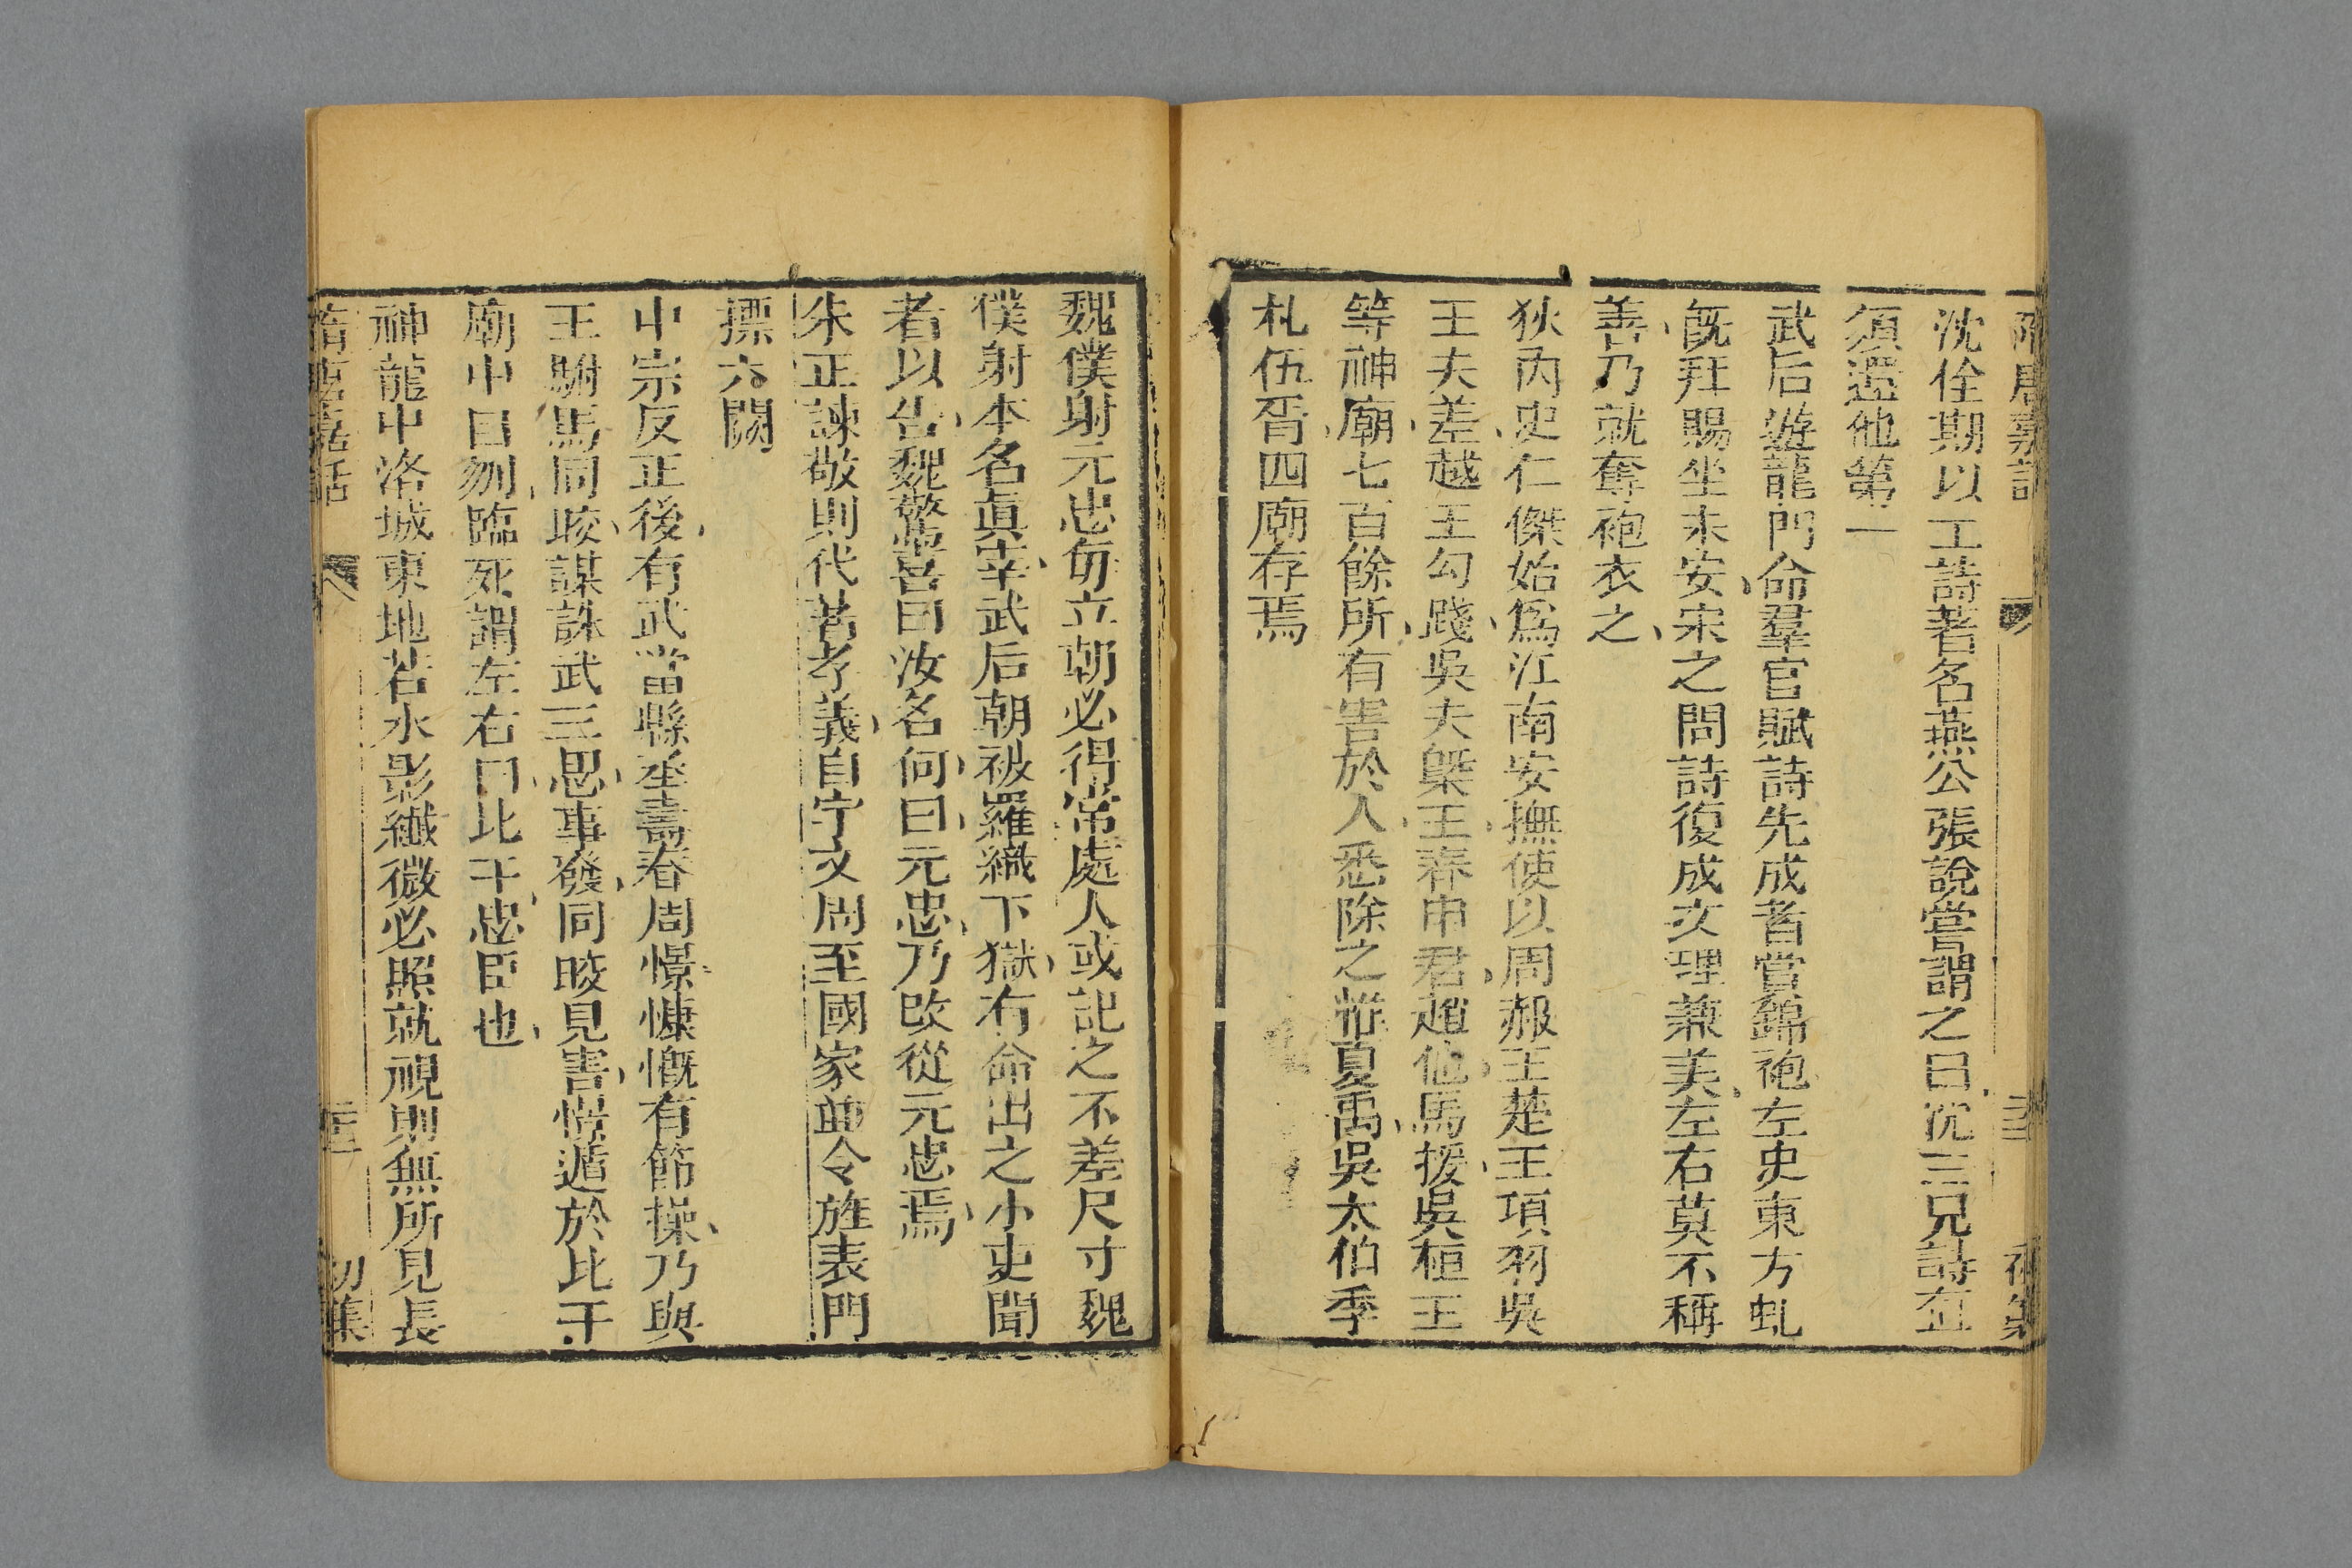 隋唐嘉話
沈佺期以工詩著名燕公張說嘗謂之曰沈三兄詩直
須還他第一
武后遊龍門命羣官賦詩先成者賞錦袍左史東方虬
旣拜賜坐未安宋之問詩復成文理兼美左右莫不稱
善乃就奪袍衣之
狄內史仁傑始爲江南安撫使以周赧王楚王項羽吳
王夫差越王勾踐吳夫槩王春申君趙佗馬援吳桓王
等神廟七百餘所有害於人悉除之惟夏禹吳太伯季
札伍胥四廟存焉
魏僕射元忠每立朝必得常處人或記之不差尺寸魏
僕射本名眞宰武后朝被羅織下獄有命出之小吏聞
者以告魏驚喜曰汝名何曰元忠乃改從元忠焉
朱正諫敬則代著孝義自宇文周至國家並令旌表門
摽六闕
中宗反正後有武當縣丞壽春周憬慷慨有節操乃與
王駙馬同晈謀誅武三思事發同晈見害憬遁於比干
廟中自刎臨死謂左右曰比干忠臣也
神龍中洛城東地若水影纖微必照就視則無所見長
初集